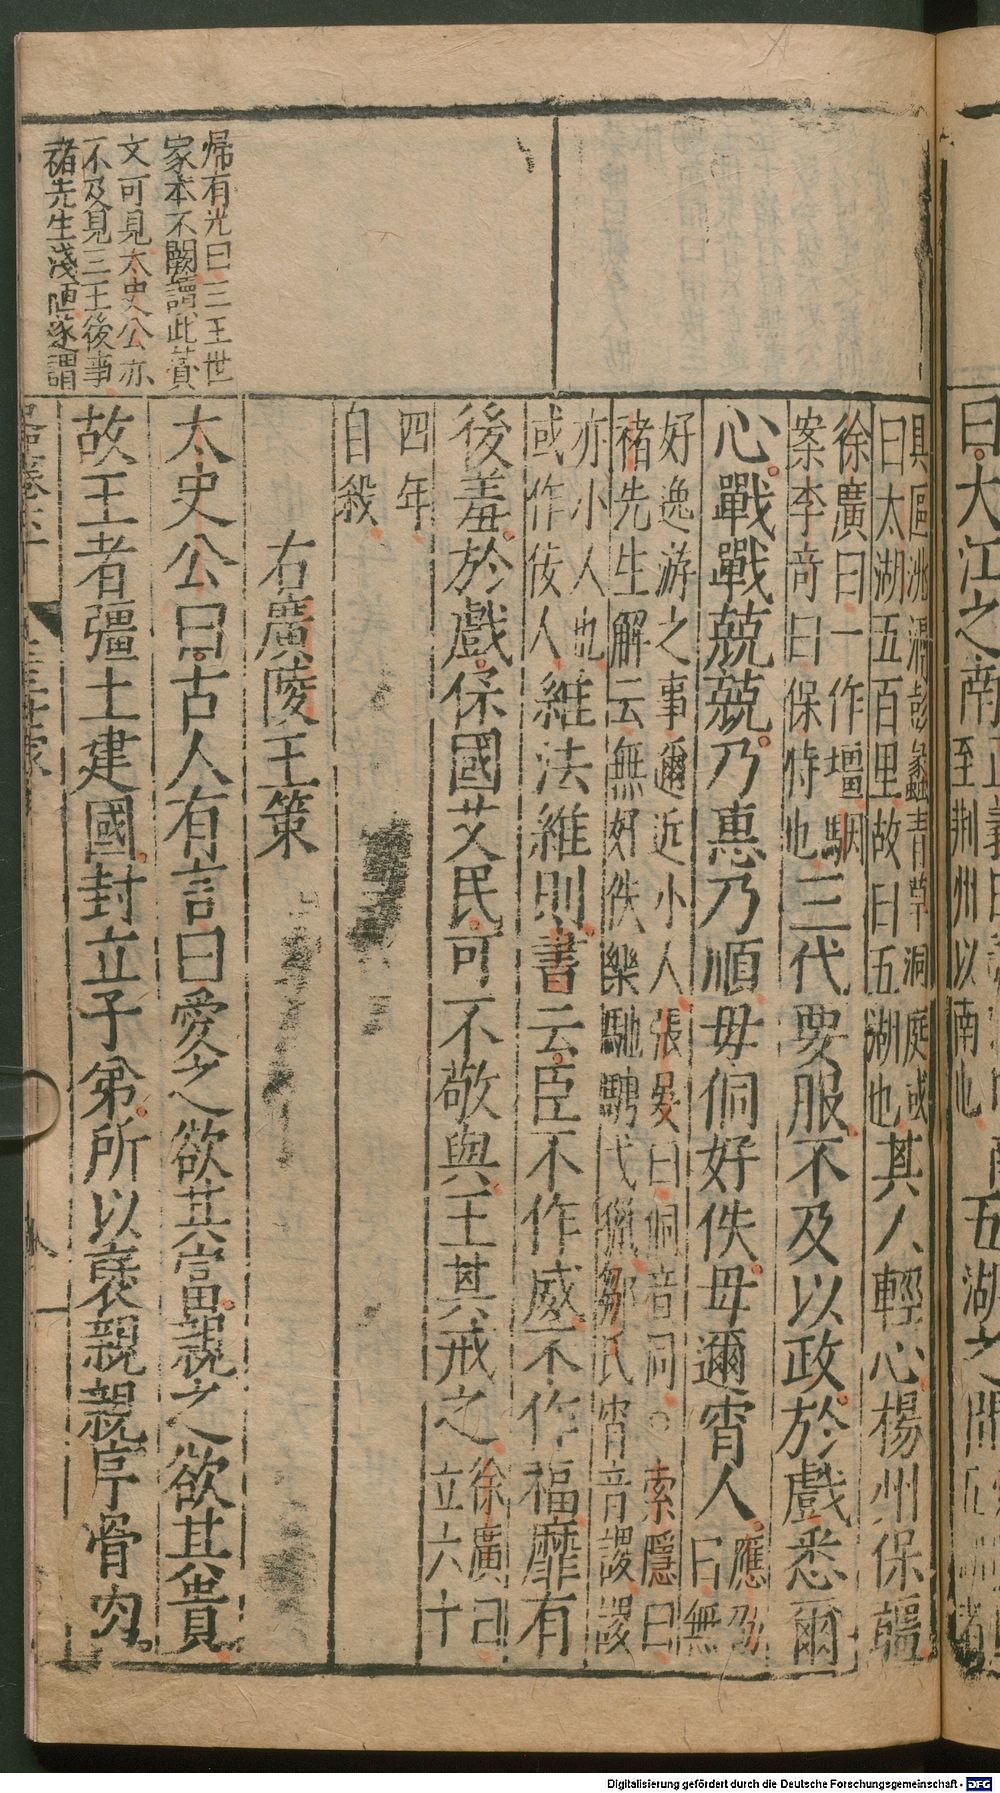 曰大江之南
至荆州以南也
五湖之間
具區洮滆彭蠡青草洞庭或
曰太湖五百里故曰五湖也
其人輕心楊州保疆
徐廣曰一作壇駰
案李奇曰保恃也
三代要服不及以政於戲悉爾
心戰戰兢兢乃惠乃順毋侗好佚毋邇宵人
應劭
曰無
好逸游之事邇近小人張晏曰侗音同○索隱曰
褚先生解云無好佚樂馳騁弋獵鄒氏宵音謏謏
亦小人也
或作佞人
維法維則書云臣不作威不作福靡有
後羞於戲保國艾民可不敬與王其戒之
徐廣曰
立六十
四年
自殺
右廣陵王策
太史公曰古人有言曰愛之欲其富親之欲其貴
故王者彊土建國封立子弟所以褒親親序骨肉
歸有光曰三王世
家本不闕讀此贊
文可見太史公亦
不及見三王後事
褚先生淺陋遂謂
Digitalisierung gefördert durch die Deutsche Forschungsgemeinschaft - DFG